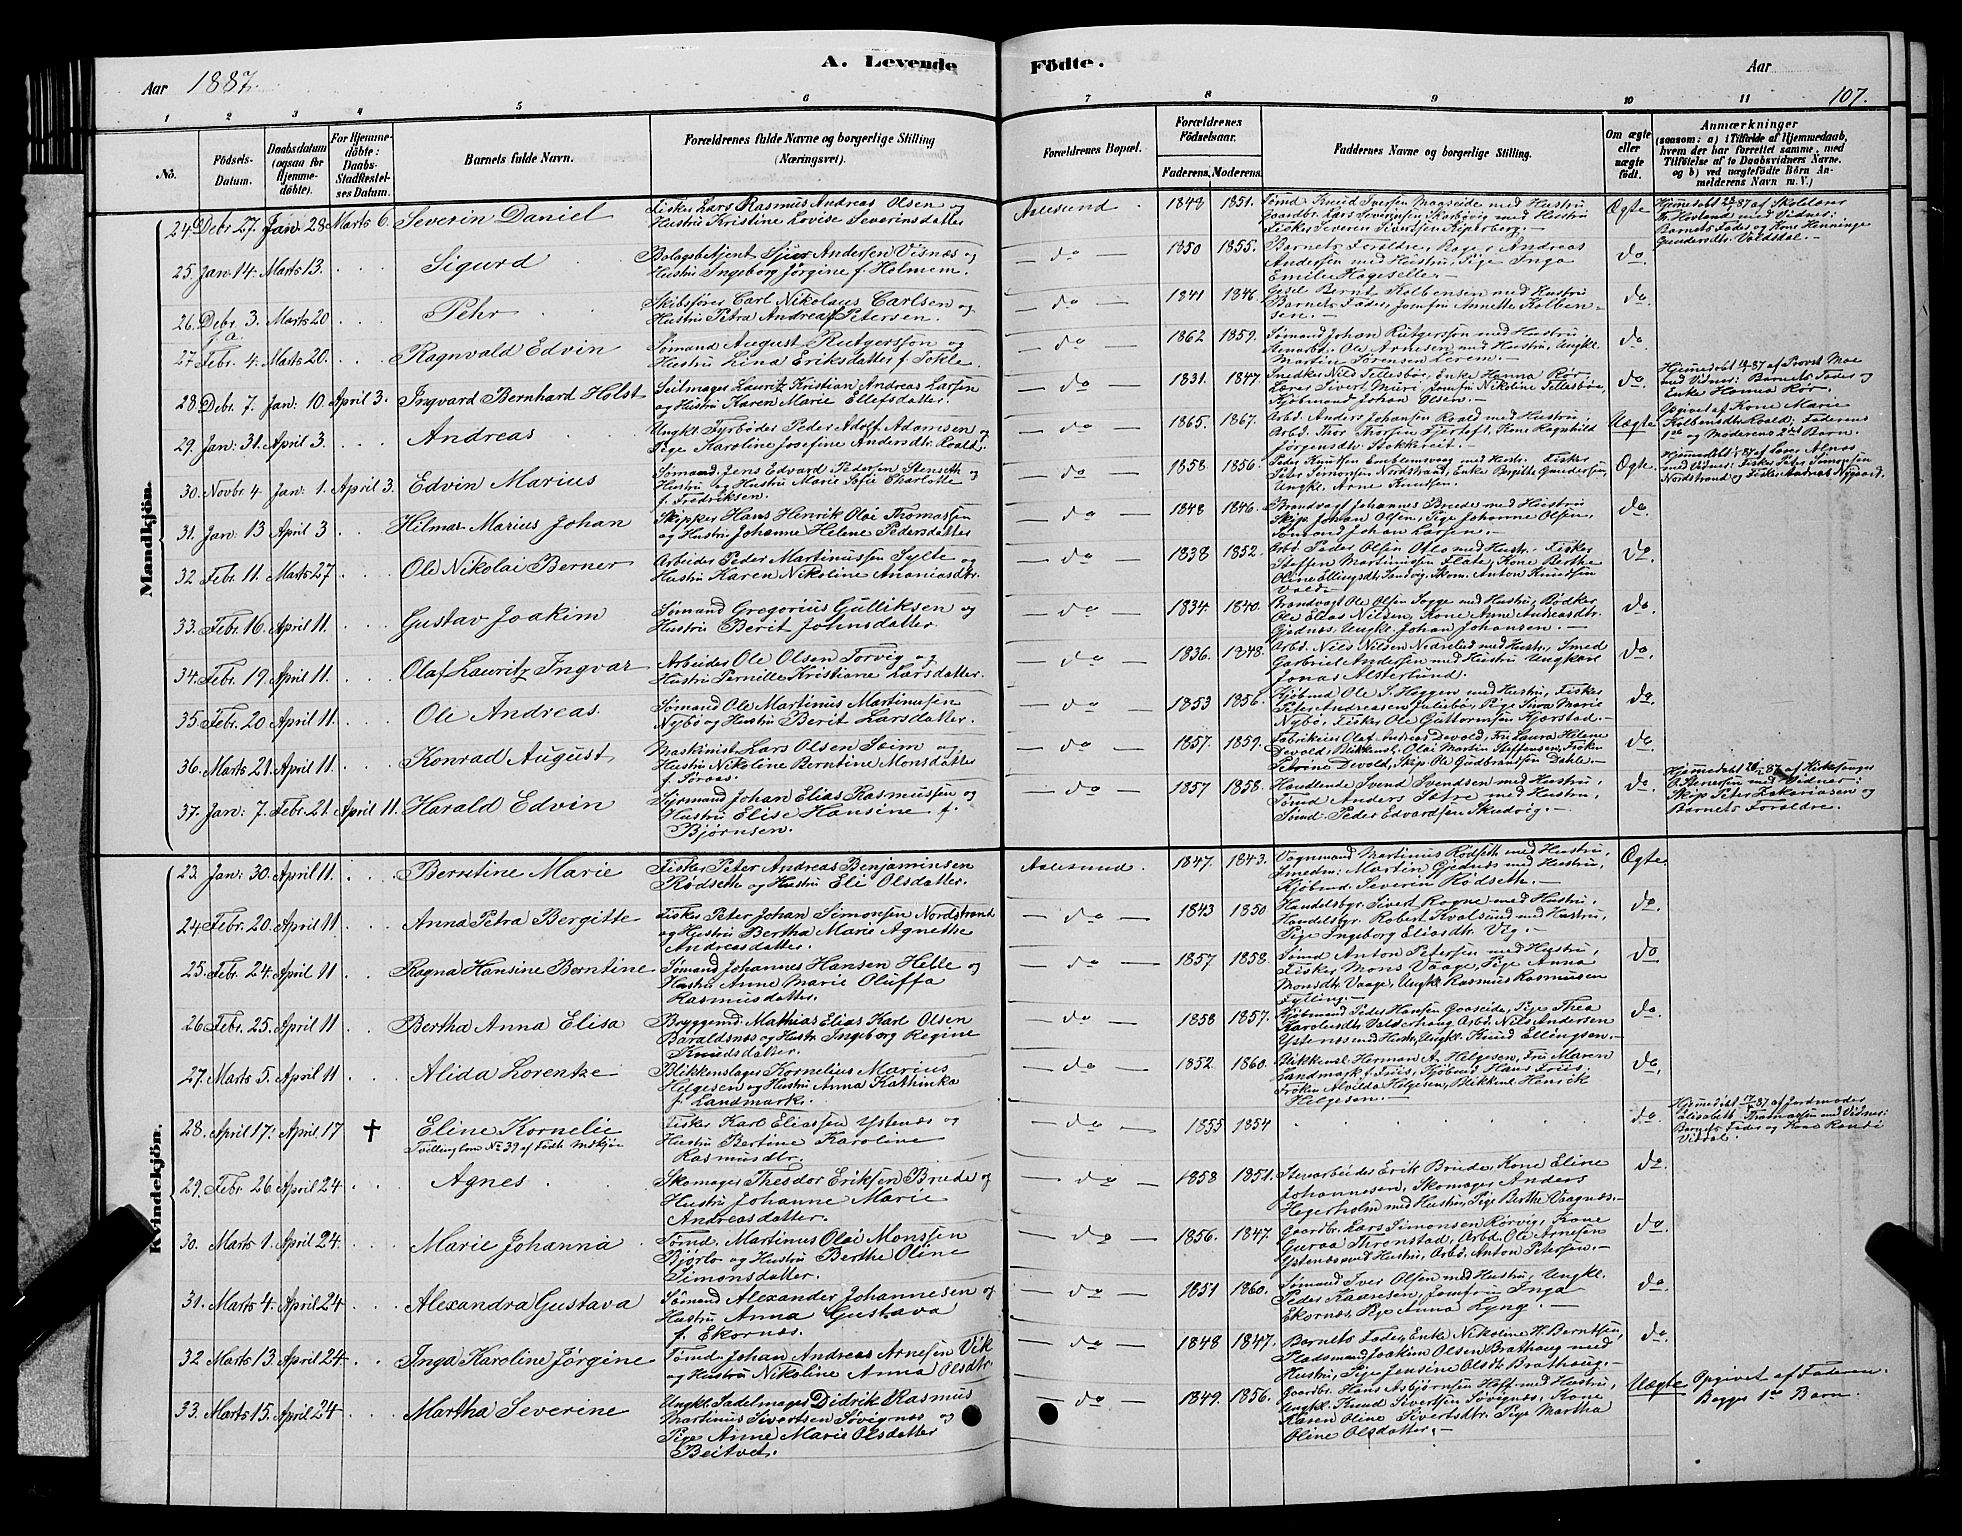 Aar 1887.
A. Levende
Födte.
Aar
107.
1 2 3 4 5 6 7 8 9 10 11
No.
Födsels-Datum.
Daabsdatum (ogsaa for Hjemme-döbte).
For Hjemme-döbte: Daabs-Stadfæstel-ses Datum.
Barnets fulde Navn.
Forældrenes fulde Navne og borgerlige Stilling (Næringsvei).
Forældrenes Bopæl.
Forældrenes Födselsaar.
Faderens. Moderens.
Faddernes Navne og borgerlige Stilling.
Om ægte eller uægte født.
Anmærkninger
(saasom: a) i Tilfælde af Hjemmedaab, hvem der har forrettet samme, med Tilföielse af to Daabsvidners Navne, og b) ved uægtefödte Börn An-melderens Navn m. V.)
Mandkjön.
24. Debr. 27. Jan: 28 Marts 6. Severin Daniel
Fisker Lars Rasmus Andreas Olsen og
Hustru Kristine Lovise Severinsdatter
Aalesund 1849 1851.
Gaardbr. Lars Severinsen Korbøvig med Hustru
Fisker Severin Sivertsen Kiperberg.
Ægte
Barnets Fader og Kone Henninge
25. Jan: 14. Marts 13. Sigurd
Bolagsbetjent Sjur Andersen Visnæs og
Hustru Ingeborg Jørgine f. Holmem.
do 1850 1855.
Barnets Forældre, Bager Andreas
Andersen med Hustru, Pige Inga
Emilie Hageselle.
do.
26. Debr. 3. Marts 20 Pehr
Skibsfører Carl Nikolaus Carlsen og
Hustru Petra Andrea f. Petersen.
do 1841 1846.
Gæst. Bernt Kolbensen med Hustru
Barnets Fader, Jomfru Annette Kolben-
sen.
do.
27 Febr. 4. Marts 20. Ragnvald Edvin
Sømand August Rutgersson og
Hustru Lina Eriksdatter f. Tokle.
do 1862 1859.
Sømand Johan Rutgersson med Hustru.
Stenarb. Ole Arnesen med Hustru, Ungkl.
Martin Sørensen Lerem.
do.
28. Debr. 7. Jan: 10. April 3. Ingvard Bernhard Holst
Seilmager Lauritz Kristian Andreas Larsen
og Hustru Karen Marie Ellefsdatter.
do 1831. 1847
Snedker Nils Tellesbø, Enke Hanna Rør,
Lærer Sivert Mürer, Jomfru Nikoline Tellesbø,
Kjøbmand Johan Olsen.
do.
Hjemmedøbt 10/1 87 af Provst Moe
med Vidner: Barnets Fader og
Enke Hanna Rør.
29. Jan: 31. April 3. Andreas
Ungkl. Fyrbøder Peder Adolf Adamsen og
Pige Karoline Josefine Andersdtr. Roald.
do 1865. 1867.
Arbd. Anders Johansen Roald med Hustru.
Arbd. Thor Thorsen Fjertoft, Kone Ragnhild
Jørgensdtr. Stokkereit.
Uægte
Opgivet af Kone Marie
Kolbensdtr. Roald, Faderens
1ste og Moderens 2det Barn.
30. Novbr. 4 Jan: 1. April 3. Edvin Marius
Sømand Jens Edvard Pedersen Stenseth
og Hustru Marie Sofie Charlotte
f. Fredriksen.
do 1858. 1856.
Peder Knutsen Emblemsvaag med Hustr. Fisker
Peter Simonsen Nordstrand, Enke Birgitte Gundersen,
Ungkl. Arne Knutsen.
Ægte.
med Vidner: Fisker Peter Simonsen
Nordstrand og Fisker Andreas Nygaard.
31. Jan: 13 April 3 Hilmar Marius Johan
Skipper Hans Henrik Olai Thomassen
og Hustru Johanne Helene Pedersdatter
do 1848 1846.
Brandvagt Johannes Brude med Hustru
Skip. Johan Olsen, Pige Johanne Olsen,
Sømand Johan Larsen.
do.
32 Febr. 11. Marts 27 Ole Nikolai Berner
Arbeider Peder Martinussen Sylte og
Hustru Karen Nikoline Ananiasdtr.
do 1838 1852.
Arbd. Peder Olsen Otlo med Hustr. Fisker
Steffen Martinussen Flate, Kone Berthe
Oline Ellingsdtr. Sandvig, Skom. Anton Knudsen
Vold.
do
33. Febr. 16 April 11. Gustav Joakim
Sømand Gregorius Gulliksen og
Hustru Berit Johnsdatter.
do 1834 1840.
Brandvagt Ole Olsen Sogge med Hustru, Bødker
Ole Elias Nilsen, Kone Anne Andreasdtr.
Gjødnæs, Ungkl. Johan Johansen.
do.
34. Febr. 19. April 11. Olaf Lauritz Ingvar
Arbeider Ole Olsen Torvig og
Hustru Pernille Kristiane Larsdatter.
do 1836. 1848.
Arbd. Nils Nilsen Nedrelid med Hustr., Smed
Garbriel Andersen med Hustru Ungkarl
Jonas Alsterlund.
do.
35. Febr. 20 April 11. Ole Andreas
Sømand Ole Martinus Martinussen
Nybø og Hustru Berit Larsdatter.
do 1853 1856.
Kjøbmd. Ole S. Høggen med Hustru, Fisker
Peter Andreassen Juliebø, Pige Siva Marie
Nybø, Fisker Ole Guttormsen Kjærstad.
do
36. Marts 21. April 11. Konrad August
Maskinist Lars Olsen Søim og
Hustru Nikoline Berntine Monsdatter
f. Sivaas.
do 1857. 1859.
Fabrikeier Olaf Andreas Devold, Fru Laura Helene
Devold, Blikkensl. Olai Martin Steffensen, Frøken
Petrine Devold, Skip. Ole Gudbrandsen Dahle.
do
37. Jan: 7. Febr. 21. April 11. Harald Edvin
Styrmand Johan Elias Rasmussen og
Hustru Elise Hansine f.
Bjørnsen.
do 1857 1858.
Handlende Svend Svendsen med Hustru,
Sømd. Anders Sætre med Hustru,
Sømd. Peder Edvardsen Skudvig.
do
Hjemmedøbt 21/2 87 af Kirkesanger
O. Stenersen med Vidner:
Skip. Peter Zakariasen og
Barnets Forældre.
Kvindekjön.
23. Jan: 30. April 11. Berntine Marie
Fisker Peter Andreas Benjaminsen
Rødseth og Hustru Eli Olsdatter.
Aalesund. 1847. 1843.
Vognmand Martinus Rødseth med Hustru,
Smedm: Martin Gjødnæs med Hustru,
Kjøbmd. Severin Rødseth.
Ægte.
24 Febr. 20. April 11 Anna Petra Bergitte
Fisker Peter Johan Simonsen Nordstrand
og Hustru Bertha Marie Agnethe
Andreasdatter.
do 1843 1850
Handelsbgr. Sivert Rogne med Hustru,
Handelsbgr. Robert Kvalsund med Hustru,
Pige Ingeborg Eliasdtr. Vig.
do.
25 Febr. 24. April 11 Ragna Hansine Berntine
Sømand Johannes Hansen Helle og
Hustru Anne Marie Oluffa
Rasmusdatter.
do 1857 1858.
Sømd. Anton Petersen med Hustru,
Fisker Mons Vaage, Pige Anna
Monsdtr. Vaage, Ungkl. Rasmus Rasmussen
Fylling.
do
26 Febr. 25. April 11 Bertha Anna Elisa
Bryggemd. Mathias Elias Karl Olsen
Baraldsnæs og Hustr. Ingeborg Regine
Knudsdatter.
do 1858 1857.
Kjøbmand Peder Hansen Gaaseide, Pige Thea
Karolusdtr. Valderhaug, Arbd. Nils Andersen
Ystenæs med Hustr., Ungkl. Knud Ellingsen.
do.
27. Marts 5. April 11 Alida Lorentze
Blikkenslager Kornelius Marius
Helgesen og Hustru Anna Kathinka
f. Landmark.
do 1852. 1860.
Blikkensl. Herman A. Helgesen, Fru Maren
Landmark f. Friis, Kjøbmd. Hans Friis,
Frøken Alvilda Helgesen, Blikkensl. Henrik
Helgesen.
do,
28. April 17: April 17 ✝ Eline Kornelie
Tvilling tom No 39 af Fødte Mdkjøn
Fisker Karl Eliassen Ystenæs og
Hustru Bertine Karoline
Rasmusdtr.
do 1855 1854
do
Hjemmedøbt 17/4 87 af Jordmoder
Elisabeth Thomassen med Vidner:
Barnets Fader og Kone Randi
Vikdal.
29. Febr. 26 April 24 Agnes
Skomager Theodor Eriksen Brude og
Hustru Johanne Marie
Andreasdatter.
do 1858 1851.
Stenarbeider Erik Brude, Kone Eline
Johannesen, Skomager Anders
Hegerholm med Hustru, Pige Berthe Vaagnæs.
do.
30. Marts 1. April 24. Marie Johanna
Sømd. Martinus Olai Monssen
Bjørlo og Hustru Berthe Oline
Simonsdatter.
do 1856. 1847.
Gaardbr. Lars Simonsen Rørvig, Kone
Guraa Thronstad, Arbd. Ole Arnesen
Ystenæs med Hustru, Arbd. Anton Petersen.
do
31. Marts 4. April 24 Alexandra Gustava
Sømand Alexander Johannesen og
Hustru Anna Gustava
f. Ekornæs.
do 1851 1860.
Sømand Iver Olsen med Hustru, Ungkl.
Peder Kaaresen, Jomfru Inga
Ekornæs, Pige Anna Lyng.
do
32 Marts 13. April 24 Inga Karoline Jørgine
Tømd. Johan Andreas Arnesen Vik
og Hustru Nikoline Anna Olsdtr.
do 1848 1847.
Barnets Fader, Enke Nikoline H. Berntsen,
Pladsmand Joakim Olsen Brathaug med
Hustru, Pige Jensine Olsdtr. Brathaug.
do.
33. Marts 15. April 24 Martha Severine
Ungkl. Sadelmager Didrik Rasmus
Martinus Sivertsen Søvignæs og
Pige Anne Marie Olsdatter
Beitvet.
do 1849. 1856.
Gaardbr. Hans Asbjørnsen Hoff med Hustru,
Ungkl. Knud Sivertsen Søvignæs, Kone
Karen Oline Sivertsdtr. Pige Martha
Oline Olsdatter.
Uægte
Opgivet af Faderen.
Begges 1ste Barn.